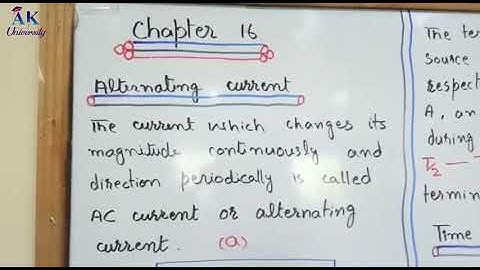 AK
University
Chapter 16
Alternating current
The current which changes its
magnitude continuously and
direction periodically is called
AC current or alternating
current. (a)
The te
source
respect
A, an
during
T/2 —
termin
Time